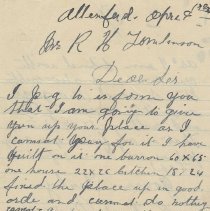 Allenford. Apr 28
Mr R H Tomlinson
Dear Ser
I beg to in form you
that I am going to give
up your place as I
cannot pay for it I have
built on it one barron 60 x 65
one house 22 x 26 kitchen 18. 24
fixed the place up in good
orde and cannot do nothing